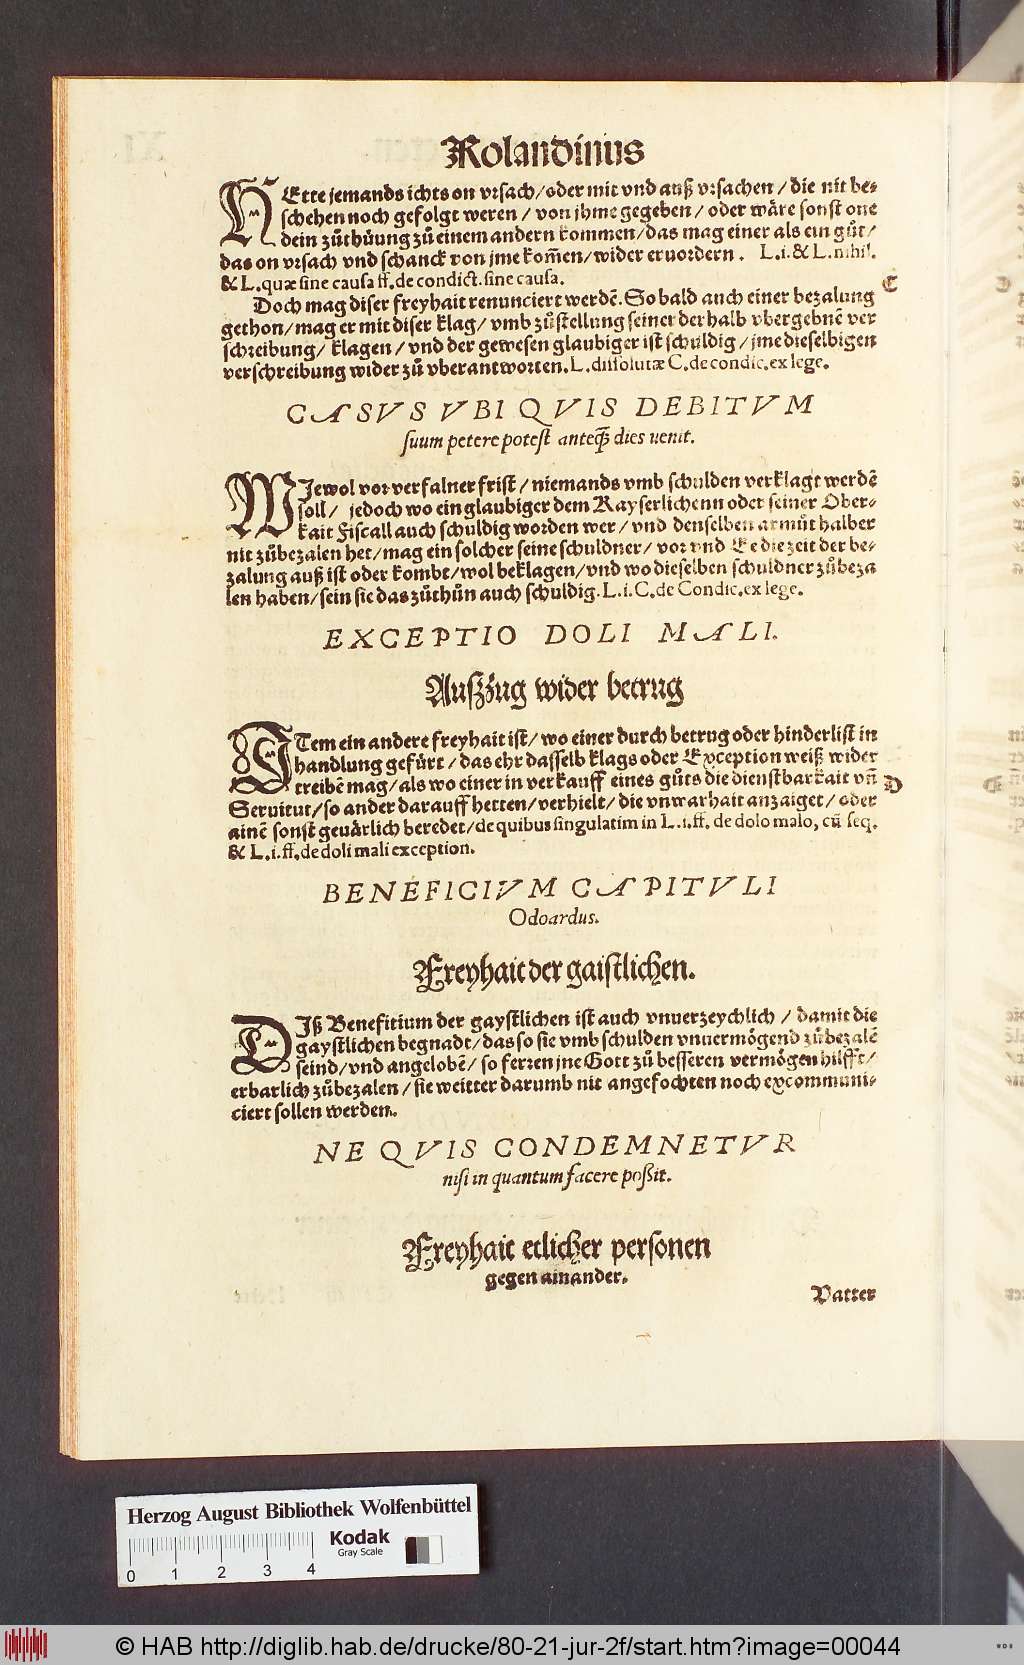 Rolandinus
HEtte jemands ichts on vrsach/oder mit vnd auß vrsachen / die nit be⸗
schehen noch gefolgt weren / von jhme gegeben / oder wäre sonst one
dein zůthůung zů einem andern kommen/das mag einer als ein gůt/
das on vrsach vnd schanck von jme kom̃en/wider eruordern. L.i.& L.nihil.
& L.quæ sine causa ff.de condict.sine causa.
Doch mag diser freyhait renunciert werdẽ. So bald auch einer bezalung
C
gethon/mag er mit diser klag/ vmb zůstellung seiner derhalb vbergebnẽ ver
schreibung/ klagen / vnd der gewesen glaubiger ist schuldig / jme dieselbigen
verschreibung wider zů vberantworten. L.dissolutæ C.de condic.ex lege.
CASVS VBI QVIS DEBITVM
suum petere potest anteq̃ dies uenit.
WIewol vor verfalner frist / niemands vmb schulden verklagt werdẽ
soll / jedoch wo ein glaubiger dem Kayserlichenn oder seiner Ober⸗
kait Fiscall auch schuldig worden wer / vnd denselben armůt halber
nit zůbezalen het/mag ein solcher seine schuldner/ vor vnd Ee die zeit der be⸗
zalung auß ist oder kombt/wol beklagen/vnd wo dieselben schuldner zůbeza
len haben/sein sie das zůthůn auch schuldig. L.i.C.de Condic.ex lege.
EXCEPTIO DOLI MALI.
Außzug wider betrug
ITem ein andere freyhait ist/ wo einer durch betrug oder hinderlist in
handlung gefürt / das ehr dasselb klags oder Exception weiß wider
treibẽ mag/als wo einer in verkauff eines gůts die dienstbarkait vñ
D
Seruitut/so ander darauff hetten/verhielt/ die vnwarhait anzaiget/ oder
ainẽ sonst geuärlich beredet/de quibus singulatim in L.i.ff. de dolo malo, cũ seq.
& L.i.ff.de doli mali exception.
BENEFICIVM CAPITVLI
Odoardus.
Freyhait der gaistlichen.
DIß Benefitium der gaystlichen ist auch vnuerzeychlich / damit die
gaystlichen begnadt/das so sie vmb schulden vnuermögend zůbezalẽ
seind/vnd angelobẽ/ so ferren jne Gott zů besseren vermögen hilfft/
erbarlich zůbezalen / sie weitter darumb nit angefochten noch excommuni⸗
ciert sollen werden.
NE QVIS CONDEMNETVR
nisi in quantum facere poßit.
Freyhait etlicher personen
gegen ainander.
Vatter
Herzog August Bibliothek Wolfenbüttel
Kodak
Gray Scale
0 1 2 3 4
© HAB http://diglib.hab.de/drucke/80-21-jur-2f/start.htm?image=00044